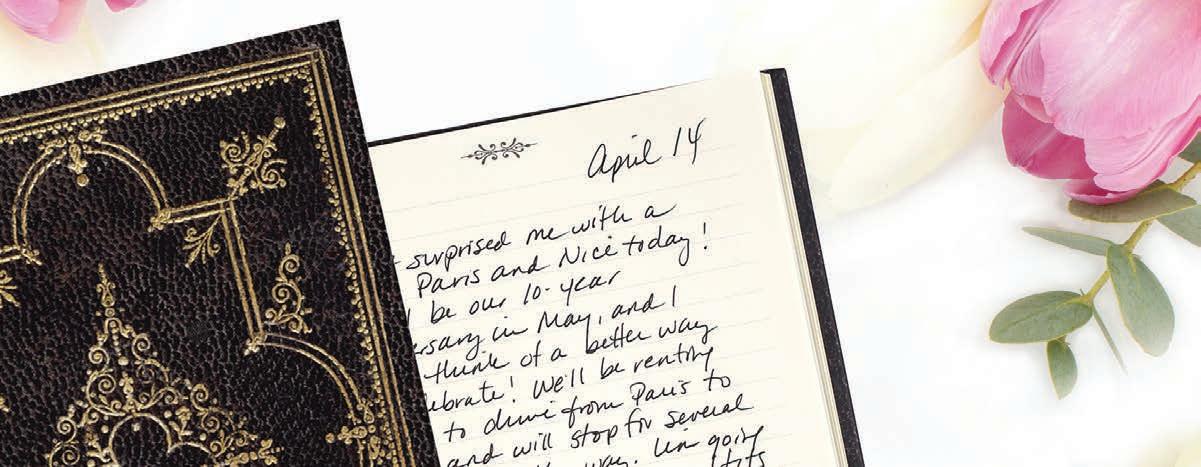 April 14
surprised me with a
Paris and Nice today!
be our 10-year
ersary in May, and I
think of a better way
ebrate! We'll be renting
to drive from Paris to
and will stop for several
way. I'm going